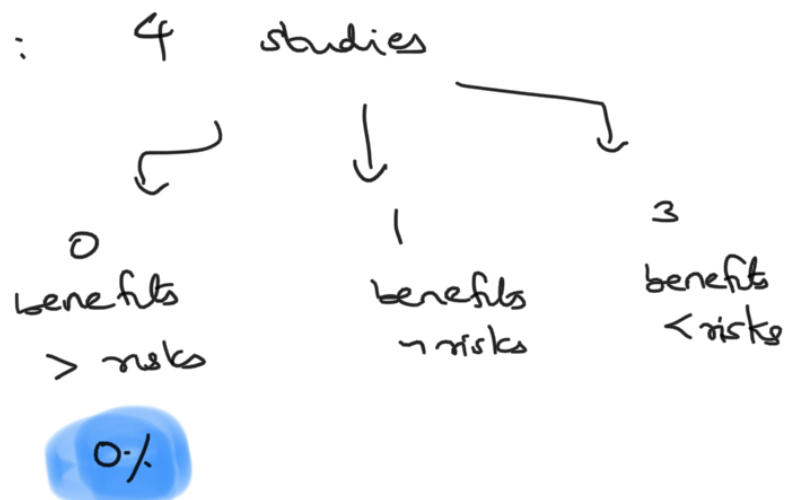 : 4 studies
0
benefits
> risks
0%
1
benefits
~ risks
3
benefits
< risks